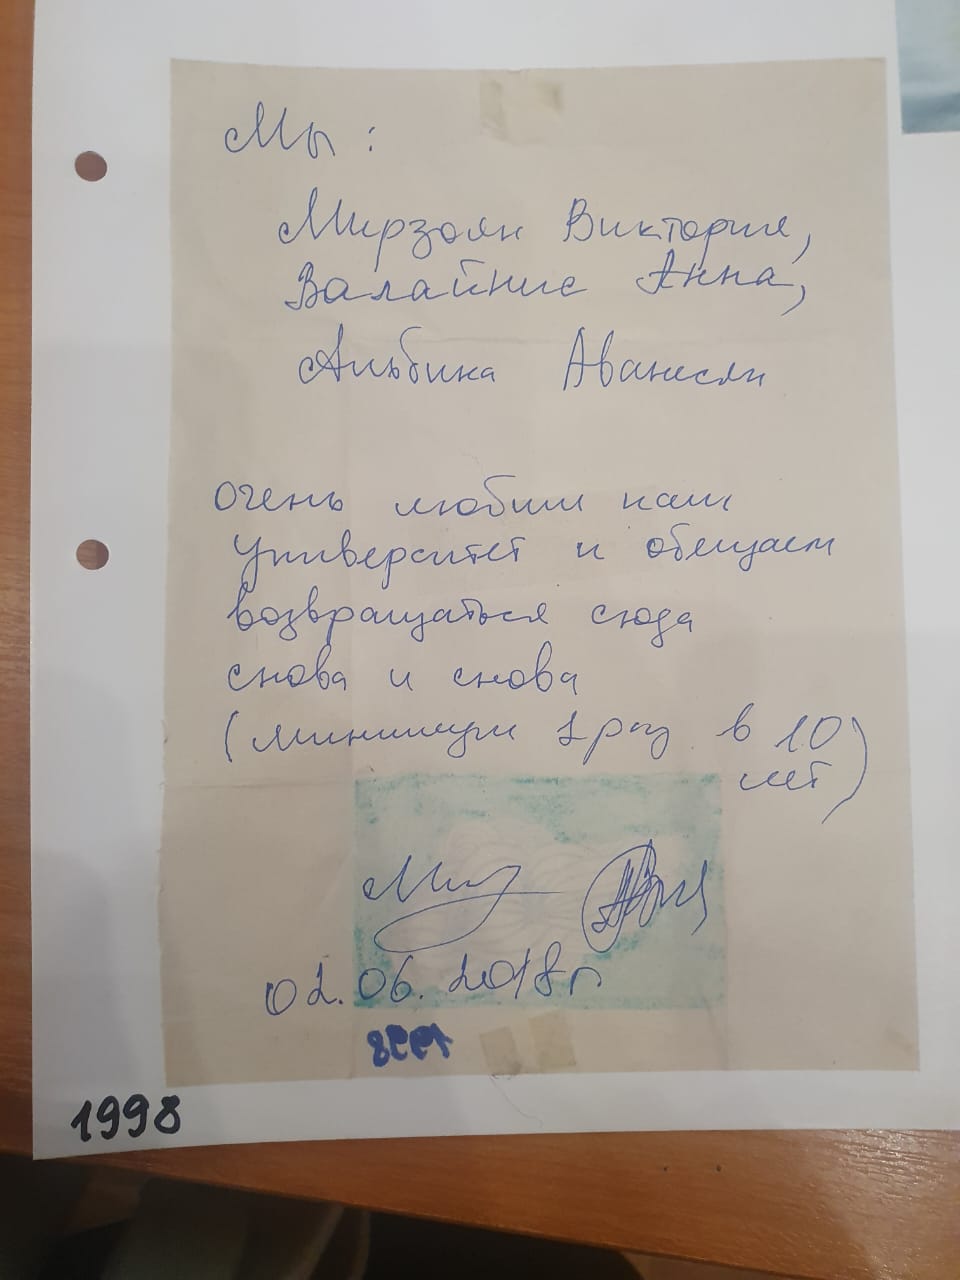 Мы:
Мирзоян Виктория,
Валайтис Анна,
Альбина Аванесян
очень любим наш
Университет и обещаем
возвращаться сюда
снова и снова
(минимум 1 раз в 10
лет)
02.06.2018г
1998
1998